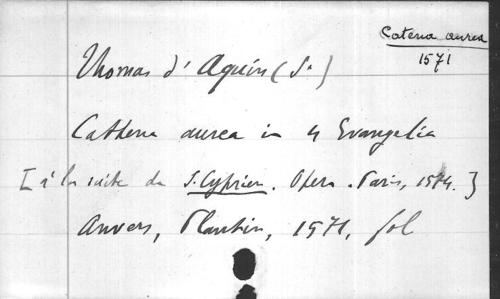 Catena aurea
1571
Thomas d'Aquin (St)
Cathena aurea in 4 Evangelia
[à la suite de S. Cyprien. Opera. Paris, 1574.]
Anvers, Plantin, 1571, fol